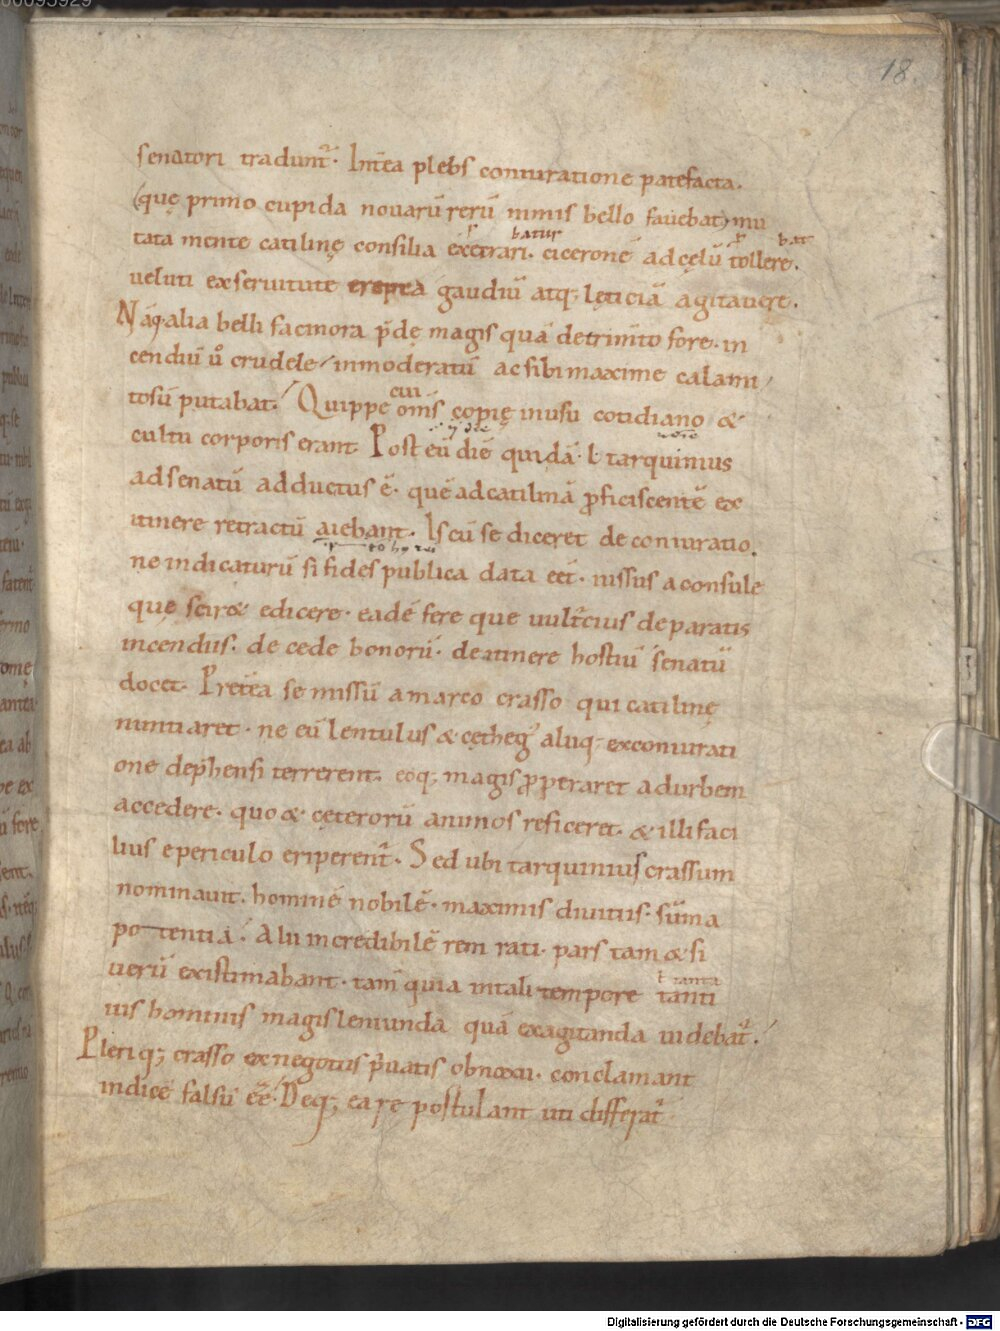 00095929
18
senatori tradunt᷑. Int̄ea plebs coniuratione patefacta.
(quę primo cupida nouarū rerū nimis bello fauebat) mu
tata mente catilinę consilia execrari. ciceronē ad cęlū tollere.
batur
bat
ueluti ex seruitute erepta gaudiū atq; lęticiā agitauere.
Nāq; alia belli facinora p̄dę magis quā detrim̄to fore. in
cendiū ů crudele, inmoderatū ac sibi maxime calami
tosū putabat. Quippe om̄s copię in usu cotidiano &
cui
cultu corporis erant. Post eū diē quidā. l. tarquinius
ad senatū adductus ē. quē ad catilinā p̄ficiscentē ex
itinere retractū aiebant. Is cū se diceret de coniuratio
ne indicaturū si fides publica data eēt. iussus a consule
quę scir& edicere. eadē fere que uult᷑cius de paratis
incendiis. de cede bonorū. de itinere hostiū senatū
docet. Pret̄ea se missū a marco crasso qui catilinę
nuntiaret. ne eū lentulus & cęthegꝰ aliiq; ex coniurati
one dep̄hensi terrerent. eoq; magis ꝓperaret ad urbem
accedere. quo & cęterorū animos reficeret. & illi faci
lius e periculo eriperent᷑. Sed ubi tarquinius crassum
nominauit. hominē nobilē. maximis diuitiis. sūma
potentiā. Alii incredibilē rem rati. pars tam & si
uerū existimabant. tam̄ quia in tali tempore tanti
ł tanta
uis hominis magis leniunda quā exagitanda uidebat᷑.
Pleriq; crasso ex negotiis p̄uatis obnoxii. conclamant
indicē falsū eē. Deq; ea rę postulant uti differat᷑
Digitalisierung gefördert durch die Deutsche Forschungsgemeinschaft - DFG